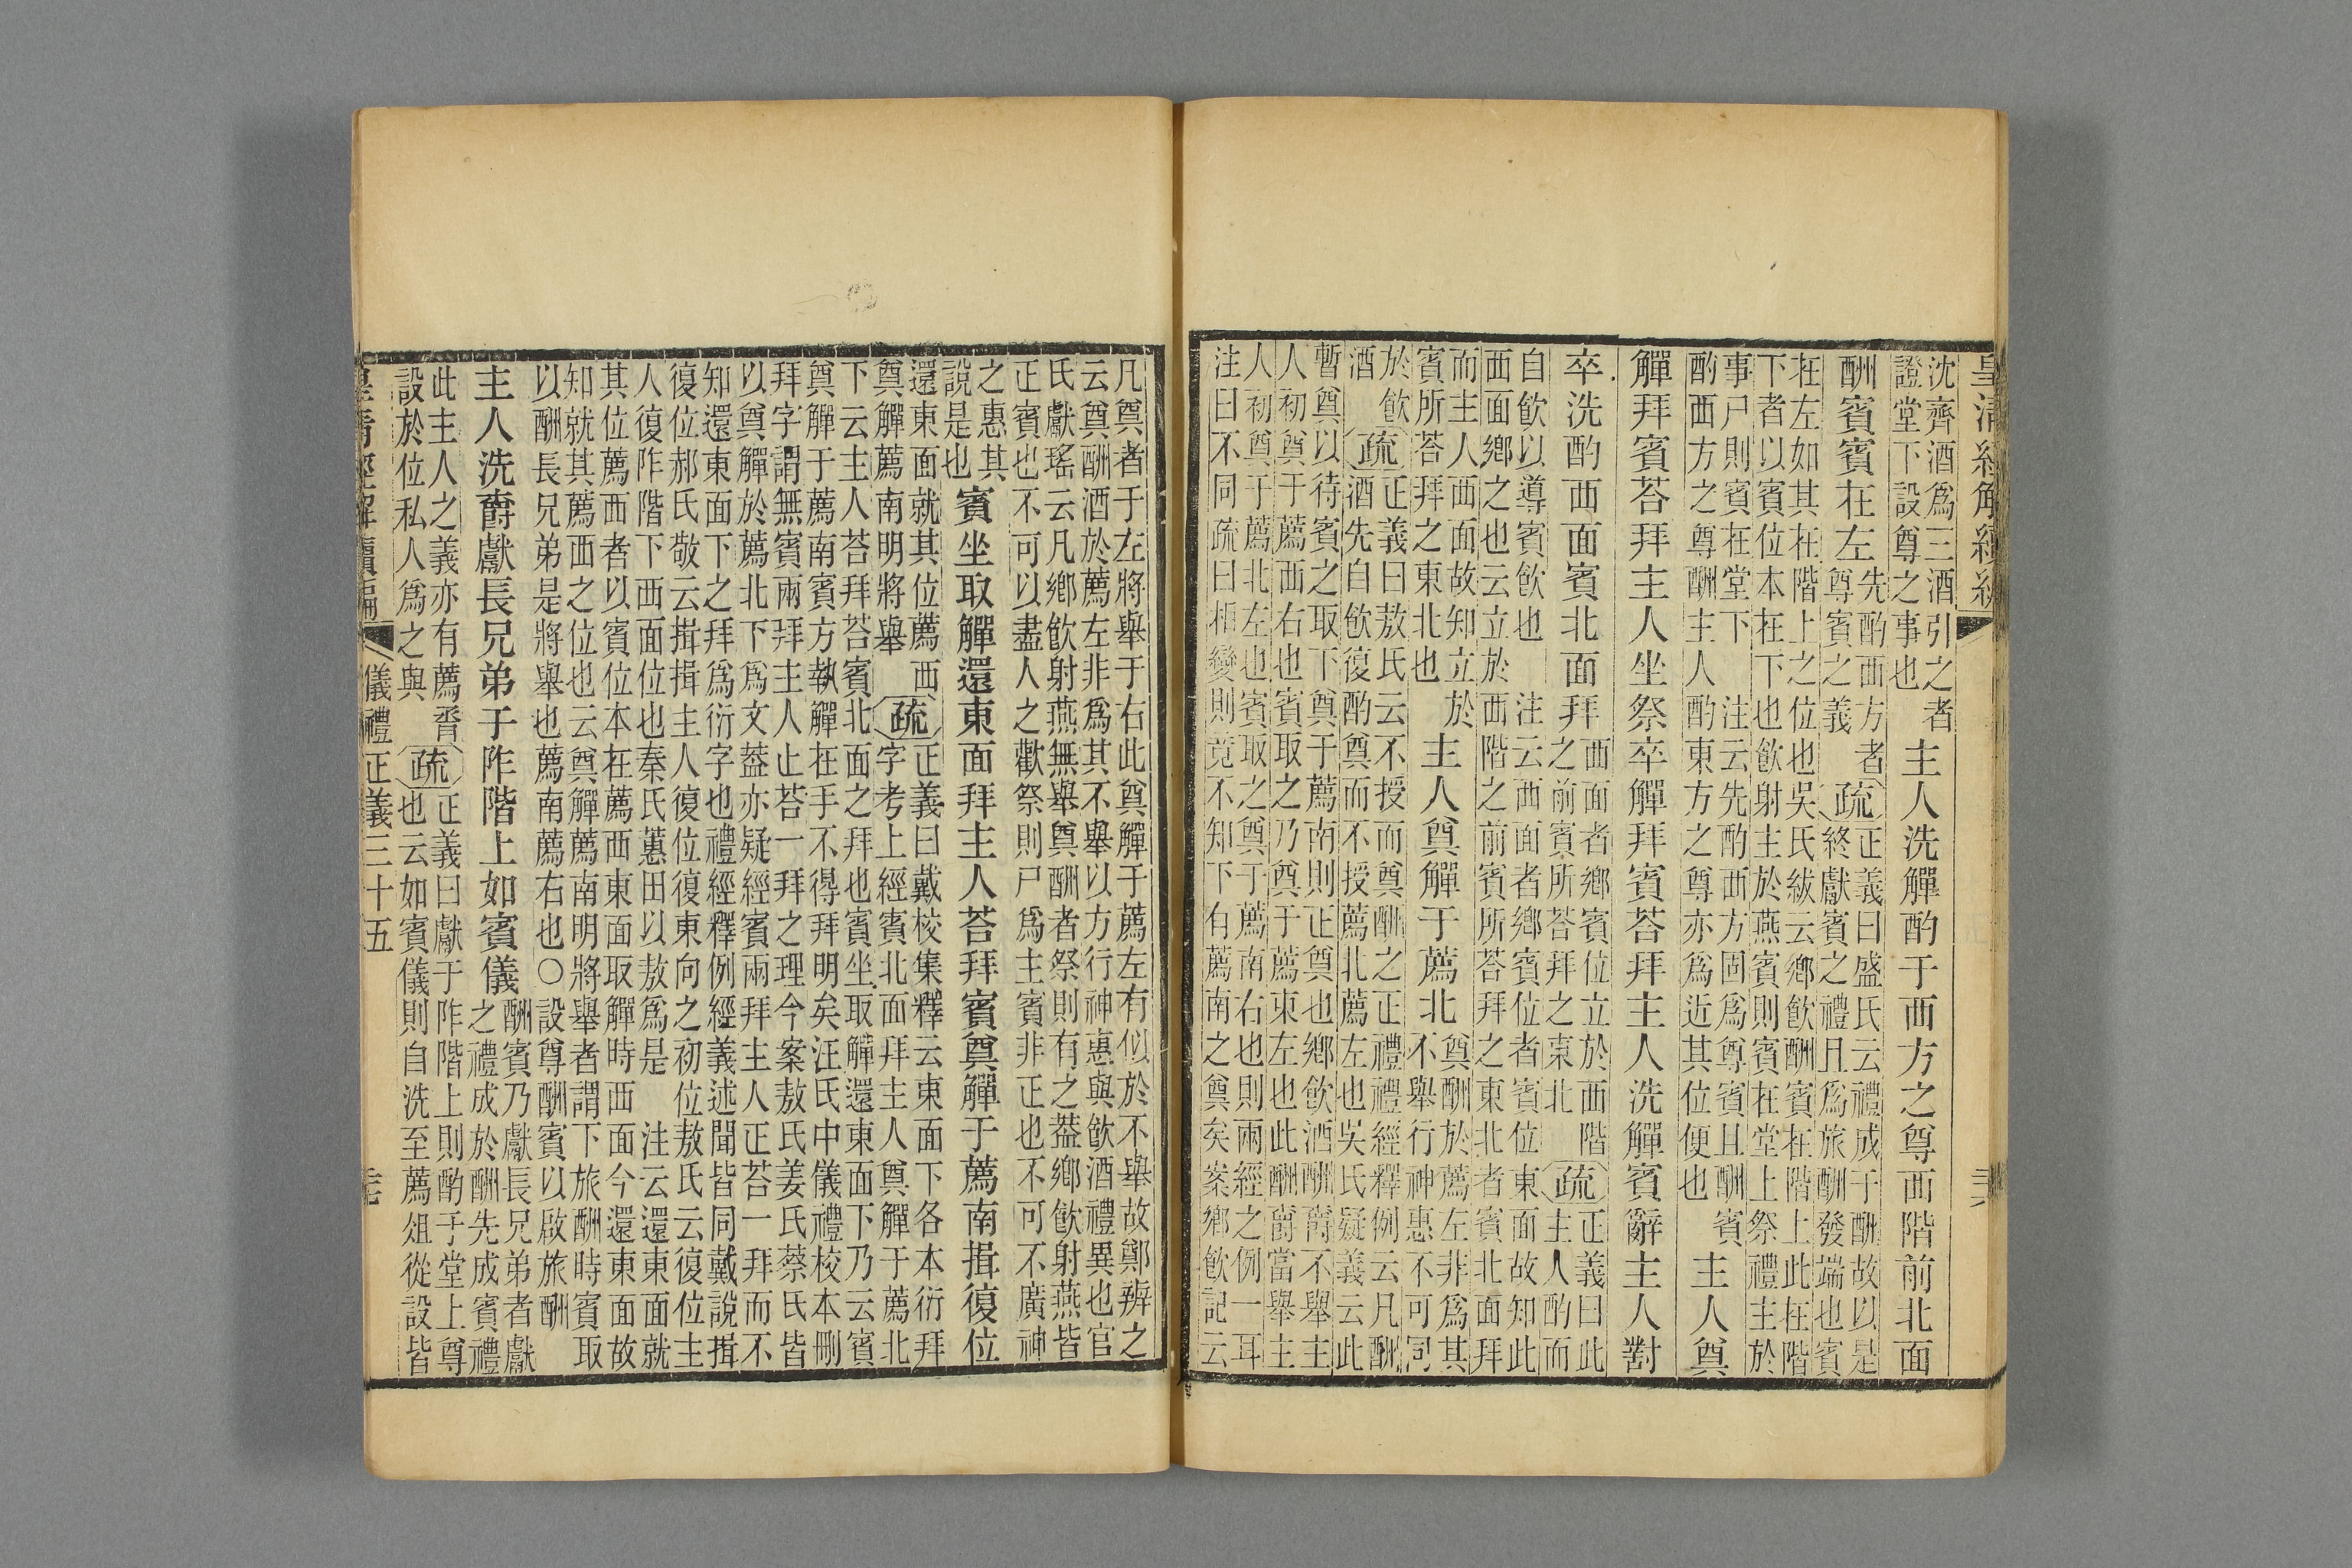 皇清經解續編
沈齊酒爲三酒引之者
證堂下設尊之事也
主人洗觶酌于西方之尊西階前北面
酬賓賓在左
先酌西方者
尊賓之義
疏
正義曰盛氏云禮成于酬故以是
終獻賓之禮且爲旅酬發端也賓
在左如其在階上之位也吳氏紱云鄉飲酬賓在階上此在階
下者以賓位本在下也飲射主於燕賓則賓在堂上祭禮主於
事尸則賓在堂下　注云先酌西方固爲尊賓且酬賓
酌西方之尊酬主人酌東方之尊亦爲近其位便也
主人奠
觶拜賓荅拜主人坐祭卒觶拜賓荅拜主人洗觶賓辭主人對
卒洗酌西面賓北面拜
西面者鄉賓位立於西階
之前賓所荅拜之東北
疏
正義曰此
主人酌而
自飲以導賓飲也　注云西面者鄉賓位者賓位東面故知此
面面鄉之也云立於西階之前賓所荅拜之東北者賓北面拜
而主人西面故知立於
賓所荅拜之東北也
主人奠觶于薦北
奠酬於薦左非爲其
不舉行神惠不可同
於飲
酒
疏
正義曰敖氏云不授而奠酬之正禮禮經釋例云凡酬
酒先自飲復酌奠而不授薦北薦左也吳氏疑義云此
暫奠以待賓之取下奠于薦南則正奠也鄉飲酒酬爵不舉主
人初奠于薦西右也賓取之乃奠于薦東左也此酬爵當舉主
人初奠于薦北左也賓取之奠于薦南右也則兩經之例一耳
注曰不同疏曰相變則竟不知下有薦南之奠矣案鄉飲記云
凡奠者于左將舉于右此奠觶于薦左有似於不舉故鄭辨之
云奠酬酒於薦左非爲其不舉以方行神惠與飲酒禮異也官
氏獻瑤云凡鄉飲射燕無舉奠酬者祭則有之葢鄉飲射燕皆
正賓也不可以盡人之歡祭則尸爲主賓非正也不可不廣神
之惠其
說是也
賓坐取觶還東面拜主人荅拜賓奠觶于薦南揖復位
還東面就其位薦西
奠觶薦南明將舉
疏
正義曰戴校集釋云東面下各本衍拜
字考上經賓北面拜主人奠觶于薦北
下云主人荅拜荅賓北面之拜也賓坐取觶還東面下乃云賓
奠觶于薦南賓方執觶在手不得拜明矣汪氏中儀禮校本刪
拜字謂無賓兩拜主人止荅一拜之理今案敖氏姜氏蔡氏皆
以奠觶於薦北下爲文葢亦疑經賓兩拜主人正荅一拜而不
知還東面下之拜爲衍字也禮經釋例經義述聞皆同戴說揖
復位郝氏敬云揖揖主人復位復東向之初位敖氏云復位主
人復阼階下西面位也秦氏蕙田以敖爲是　注云還東面就
其位薦西者以賓位本在薦西東面取觶時西面今還東面故
知就其薦西之位也云奠觶薦南明將舉者謂下旅酬時賓取
以酬長兄弟是將舉也薦南薦右也○設尊酬賓以啟旅酬
主人洗爵獻長兄弟于阼階上如賓儀
酬賓乃獻長兄弟者獻
之禮成於酬先成賓禮
此主人之義亦有薦脀
設於位私人爲之與
疏
正義曰獻于阼階上則酌于堂上尊
也云如賓儀則自洗至薦俎從設皆
皇清經解續編
儀禮正義三十五